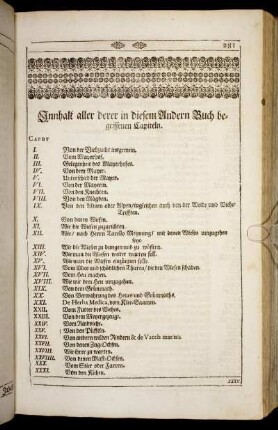 Innhalt aller derer in diesem Andern Buch be-
griffenen Capiteln.
I. Von der Viehzucht insgemein.
II. Vom Mayerhof.
III. Gelegenheit des Mayrhofes.
IV. Von dem Mayer.
V. Unterschied der Mayer.
VI. Von der Mayerin.
VII. Von den Knechten.
VIII. Von den Mägden.
IX. Von den Almen oder Alpen/ingleichen auch von der Weide und Vieh-
Trifften.
X. Von denen Wiesen.
XI. Wie die Wiesen zuzurichten.
XII. Wie/ nach Herrn Tarello Meynung/ mit denen Wiesen umzugehen
seye.
XIII. Wie die Wiesen zu dungen und zu wässern.
XIV. Wie man die Wiesen weiter warten soll.
XV. Wie man die Wiesen einzäunen solle.
XVI. Vom Moos und schädlichen Thieren/ die den Wiesen schaden.
XVII. Vom Heu machen.
XVIII. Wie mit dem Heu umzugehen.
XIX. Von dem Grünmath.
XX. Von Verwahrung des Heues und Grünmaths.
XXI. De Herba Medica, vom Klee-Saamen.
XXII. Vom Futter des Viehes.
XXIII. Von dem Mayergezeuge.
XXIV. Vom Rindvieh.
XXV. Von den Püffeln.
XXVI. Von andern wilden Rindern & de Vaccis marinis.
XXVII. Von denen Zug-Ochsen.
XXVIII. Wie ihrer zu warten.
XXIX. Von denen Mast-Ochsen.
XXX. Vom Stier oder Farren.
XXXI. Von den Kühen.